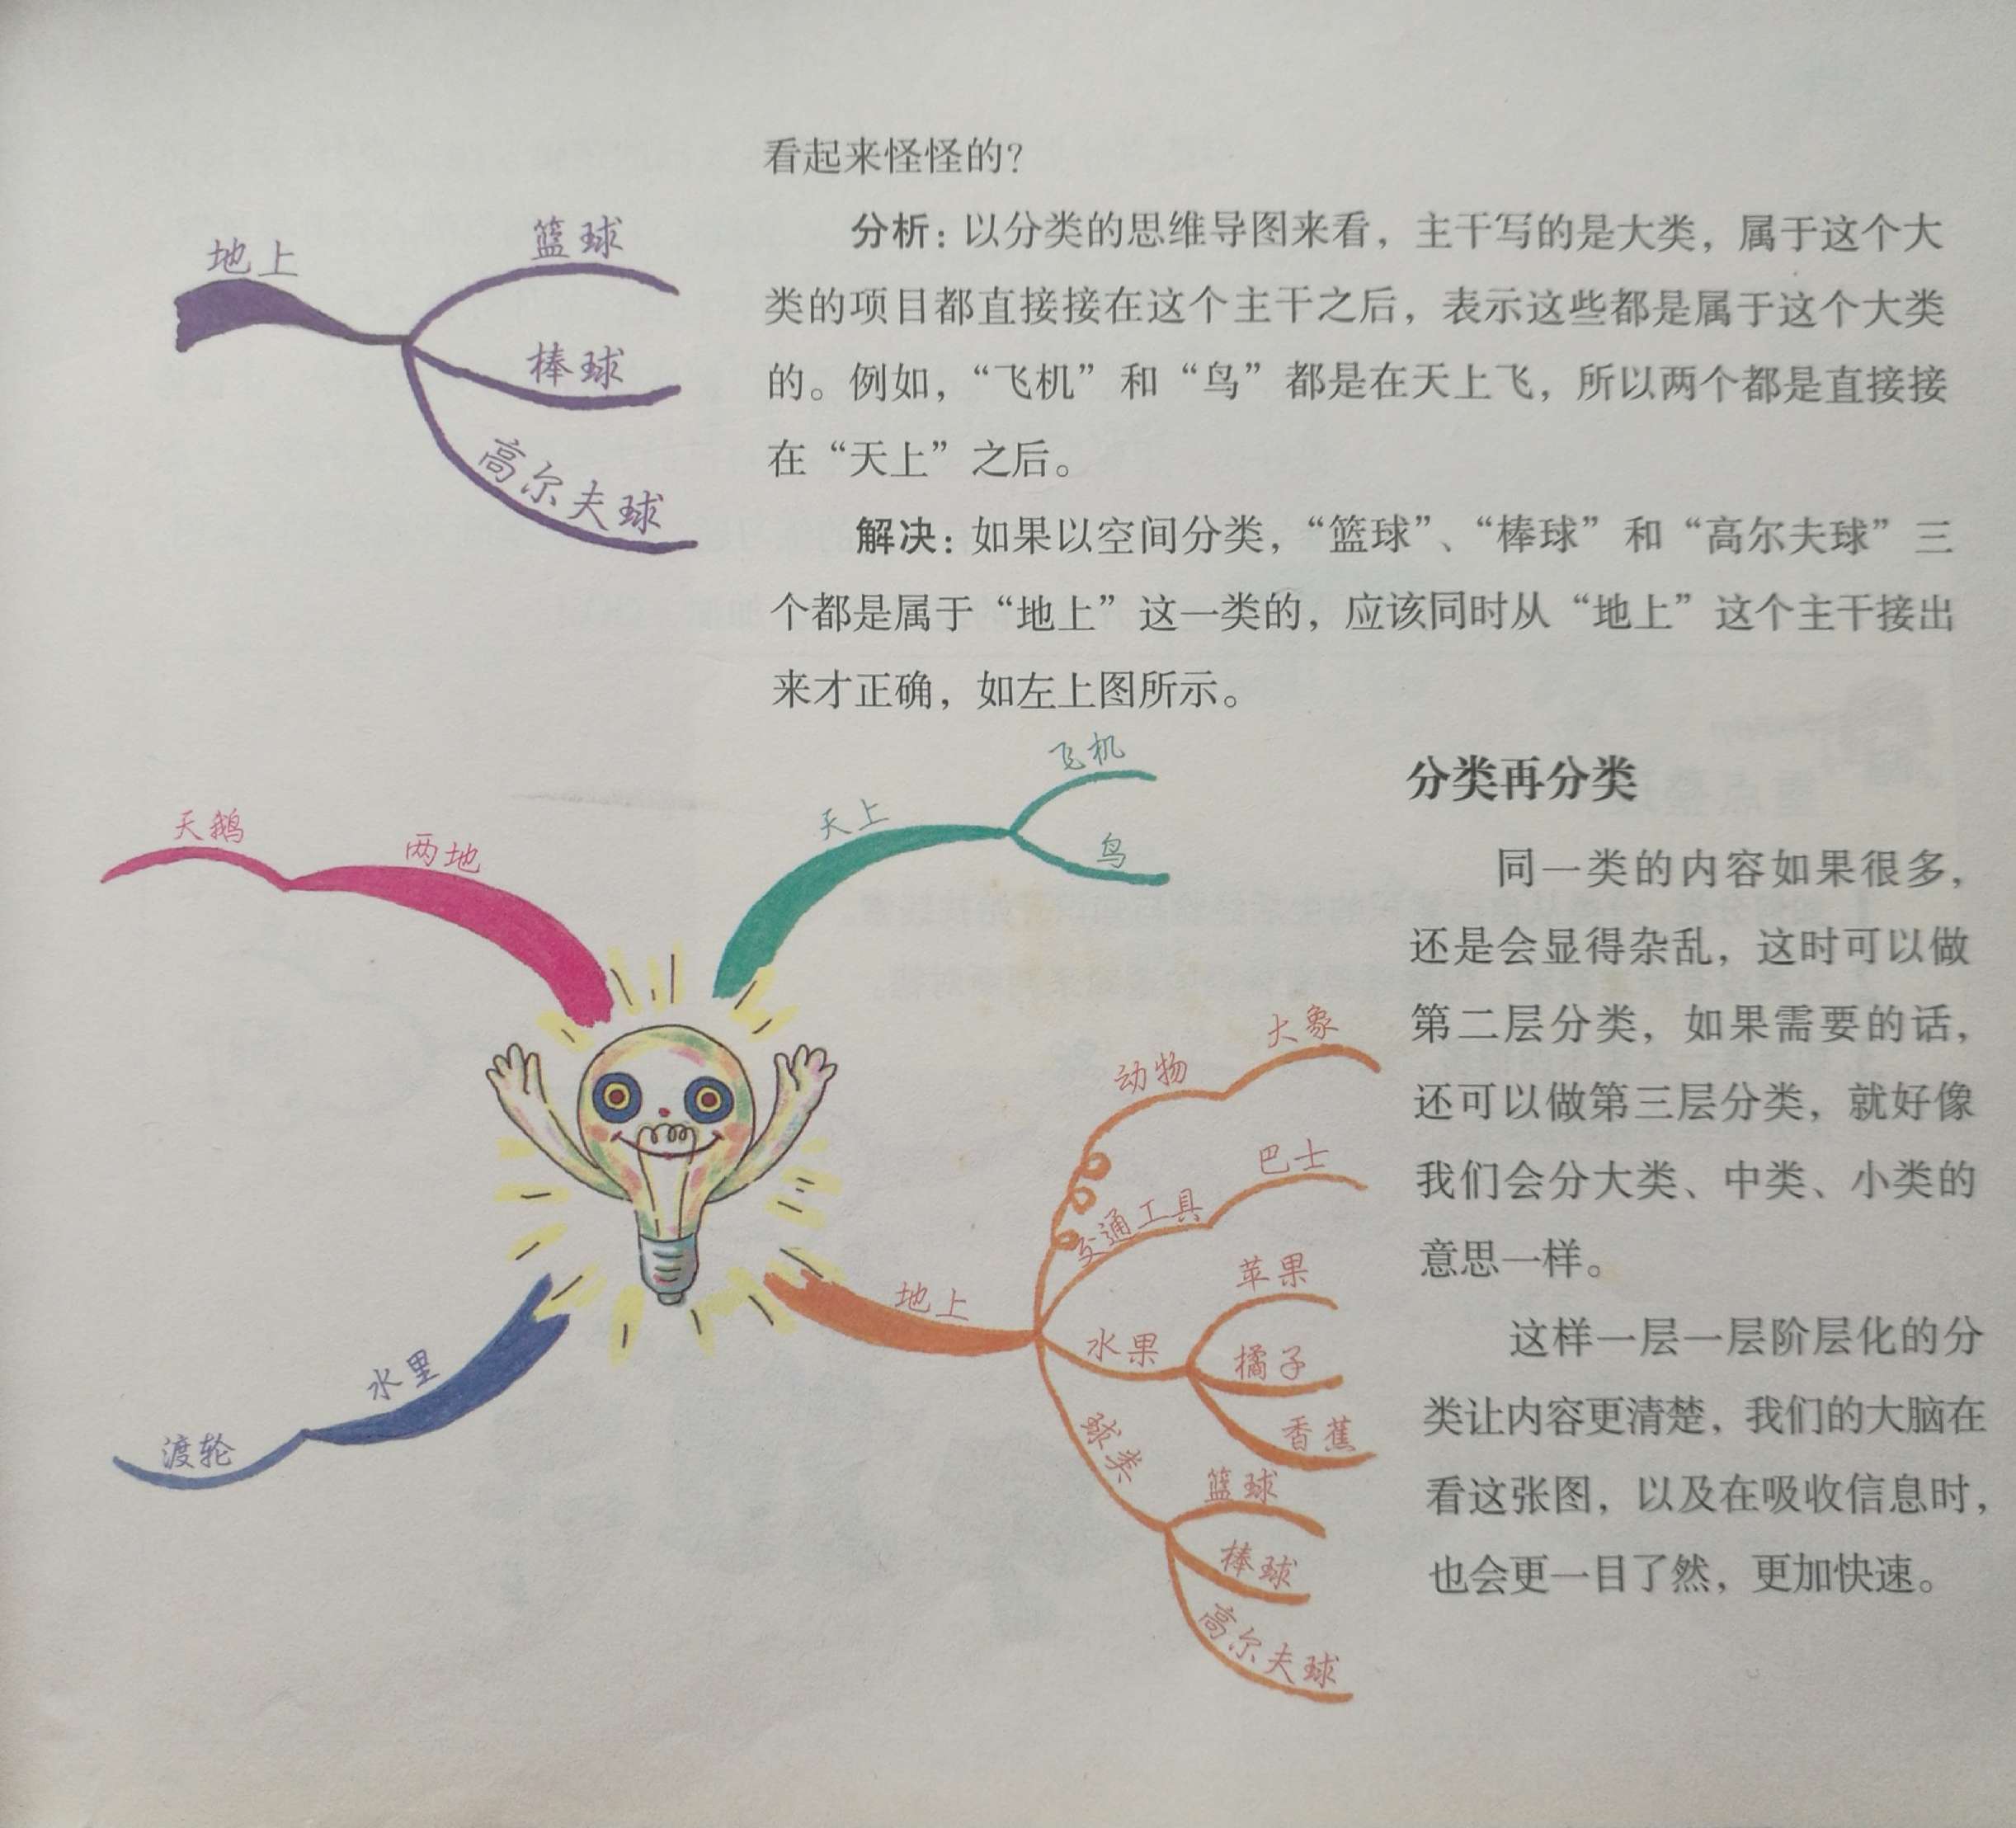 看起来怪怪的？
分析：以分类的思维导图来看，主干写的是大类，属于这个大
类的项目都直接接在这个主干之后，表示这些都是属于这个大类
的。例如，“飞机”和“鸟”都是在天上飞，所以两个都是直接接
在“天上”之后。
解决：如果以空间分类，“篮球”、“棒球”和“高尔夫球”三
个都是属于“地上”这一类的，应该同时从“地上”这个主干接出
来才正确，如左上图所示。
地上
篮球
棒球
高尔夫球
分类再分类
同一类的内容如果很多，
还是会显得杂乱，这时可以做
第二层分类，如果需要的话，
还可以做第三层分类，就好像
我们会分大类、中类、小类的
意思一样。
这样一层一层阶层化的分
类让内容更清楚，我们的大脑在
看这张图，以及在吸收信息时，
也会更一目了然，更加快速。
天上
飞机
鸟
地上
动物
大象
交通工具
巴士
水果
苹果
橘子
香蕉
球类
篮球
棒球
高尔夫球
水里
渡轮
两地
天鹅